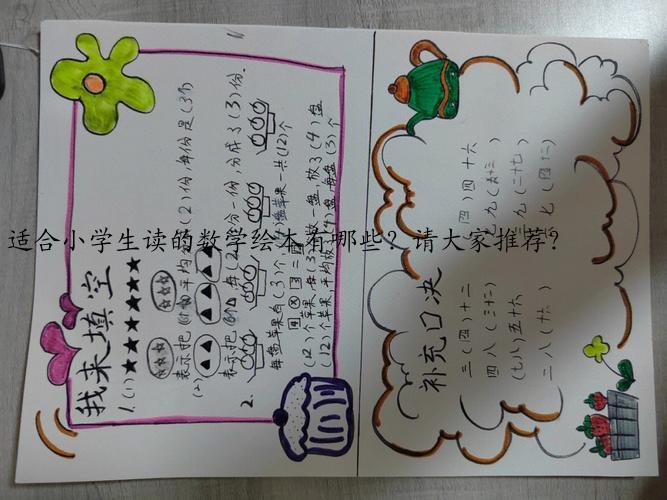 适合小学生读的数学绘本有哪些？请大家推荐？
我来填空
1.(1)★★★★★★
表示把 平均 (2)份,每份是(3个)
(2)
表示把 每(2)个分一份,分成了(3)份.
2.
每盘苹果有(3)个, 盘苹果一共(12)个
(12)个苹果,每(3) 放一盘,放了(4)盘
(12)个苹果,平均放 盘,每盘(3)个
补充口决
三(四)十二 (四)四十六
四八(三十二) 九(六十三)
(七八)五十六 九(二十七)
二八(十六) 七(四十二)